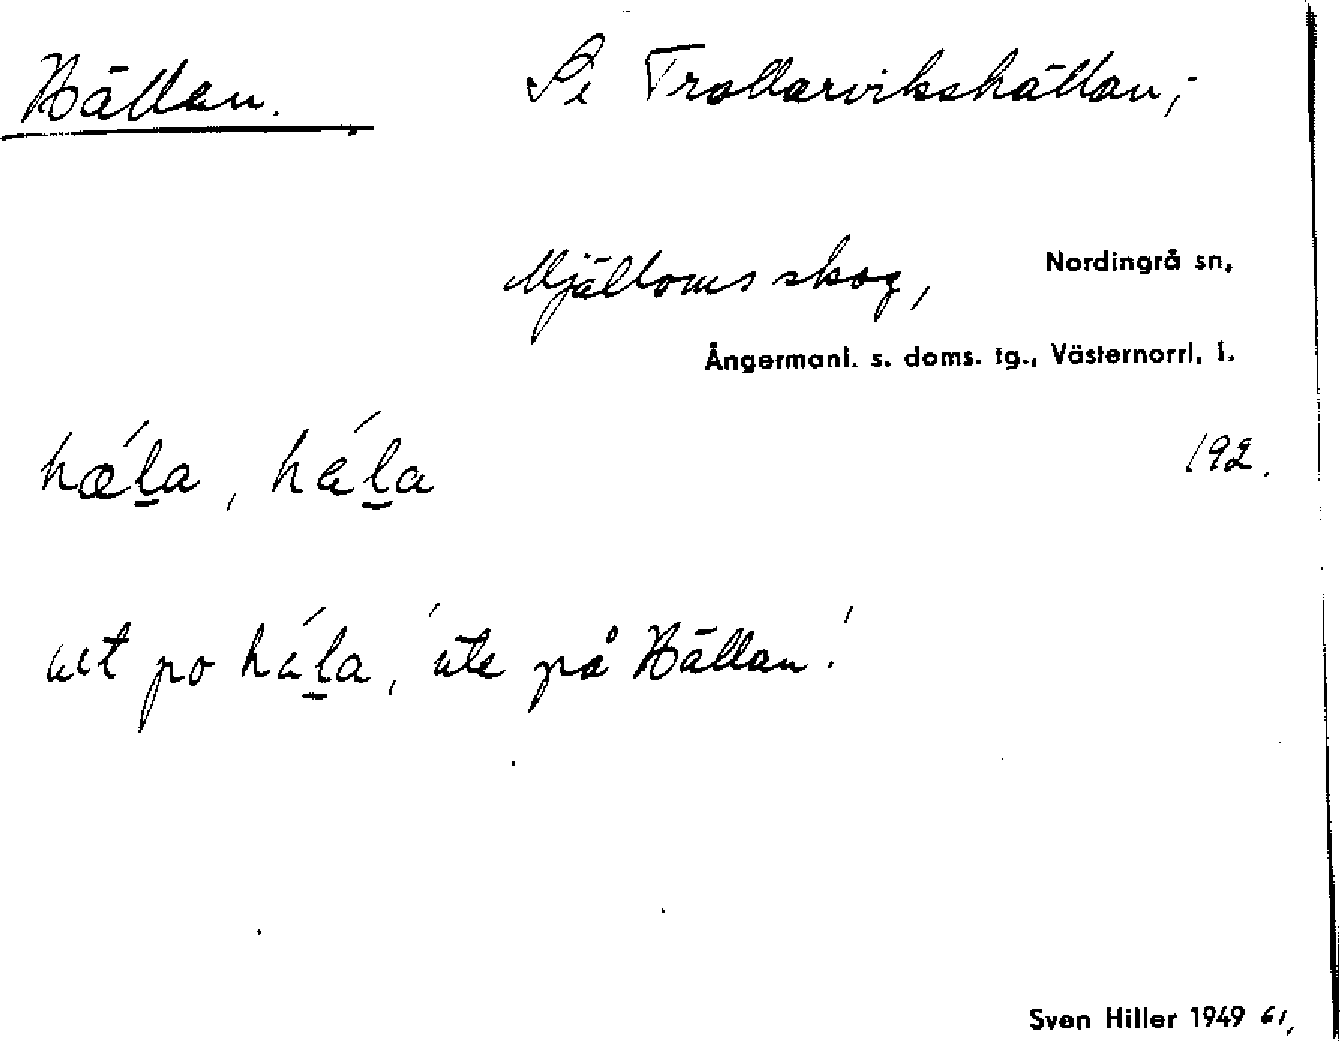 Hällan. Se Trollarvikshällan,-
Mjälloms skog, Nordingrå sn,
Ångermanl. s. doms. tg., Västernorrl. l.
hæ´l̲a, há´l̲a 192.
ut po há´l̲a, 'ute på Hällan'
Sven Hiller 1949 61,